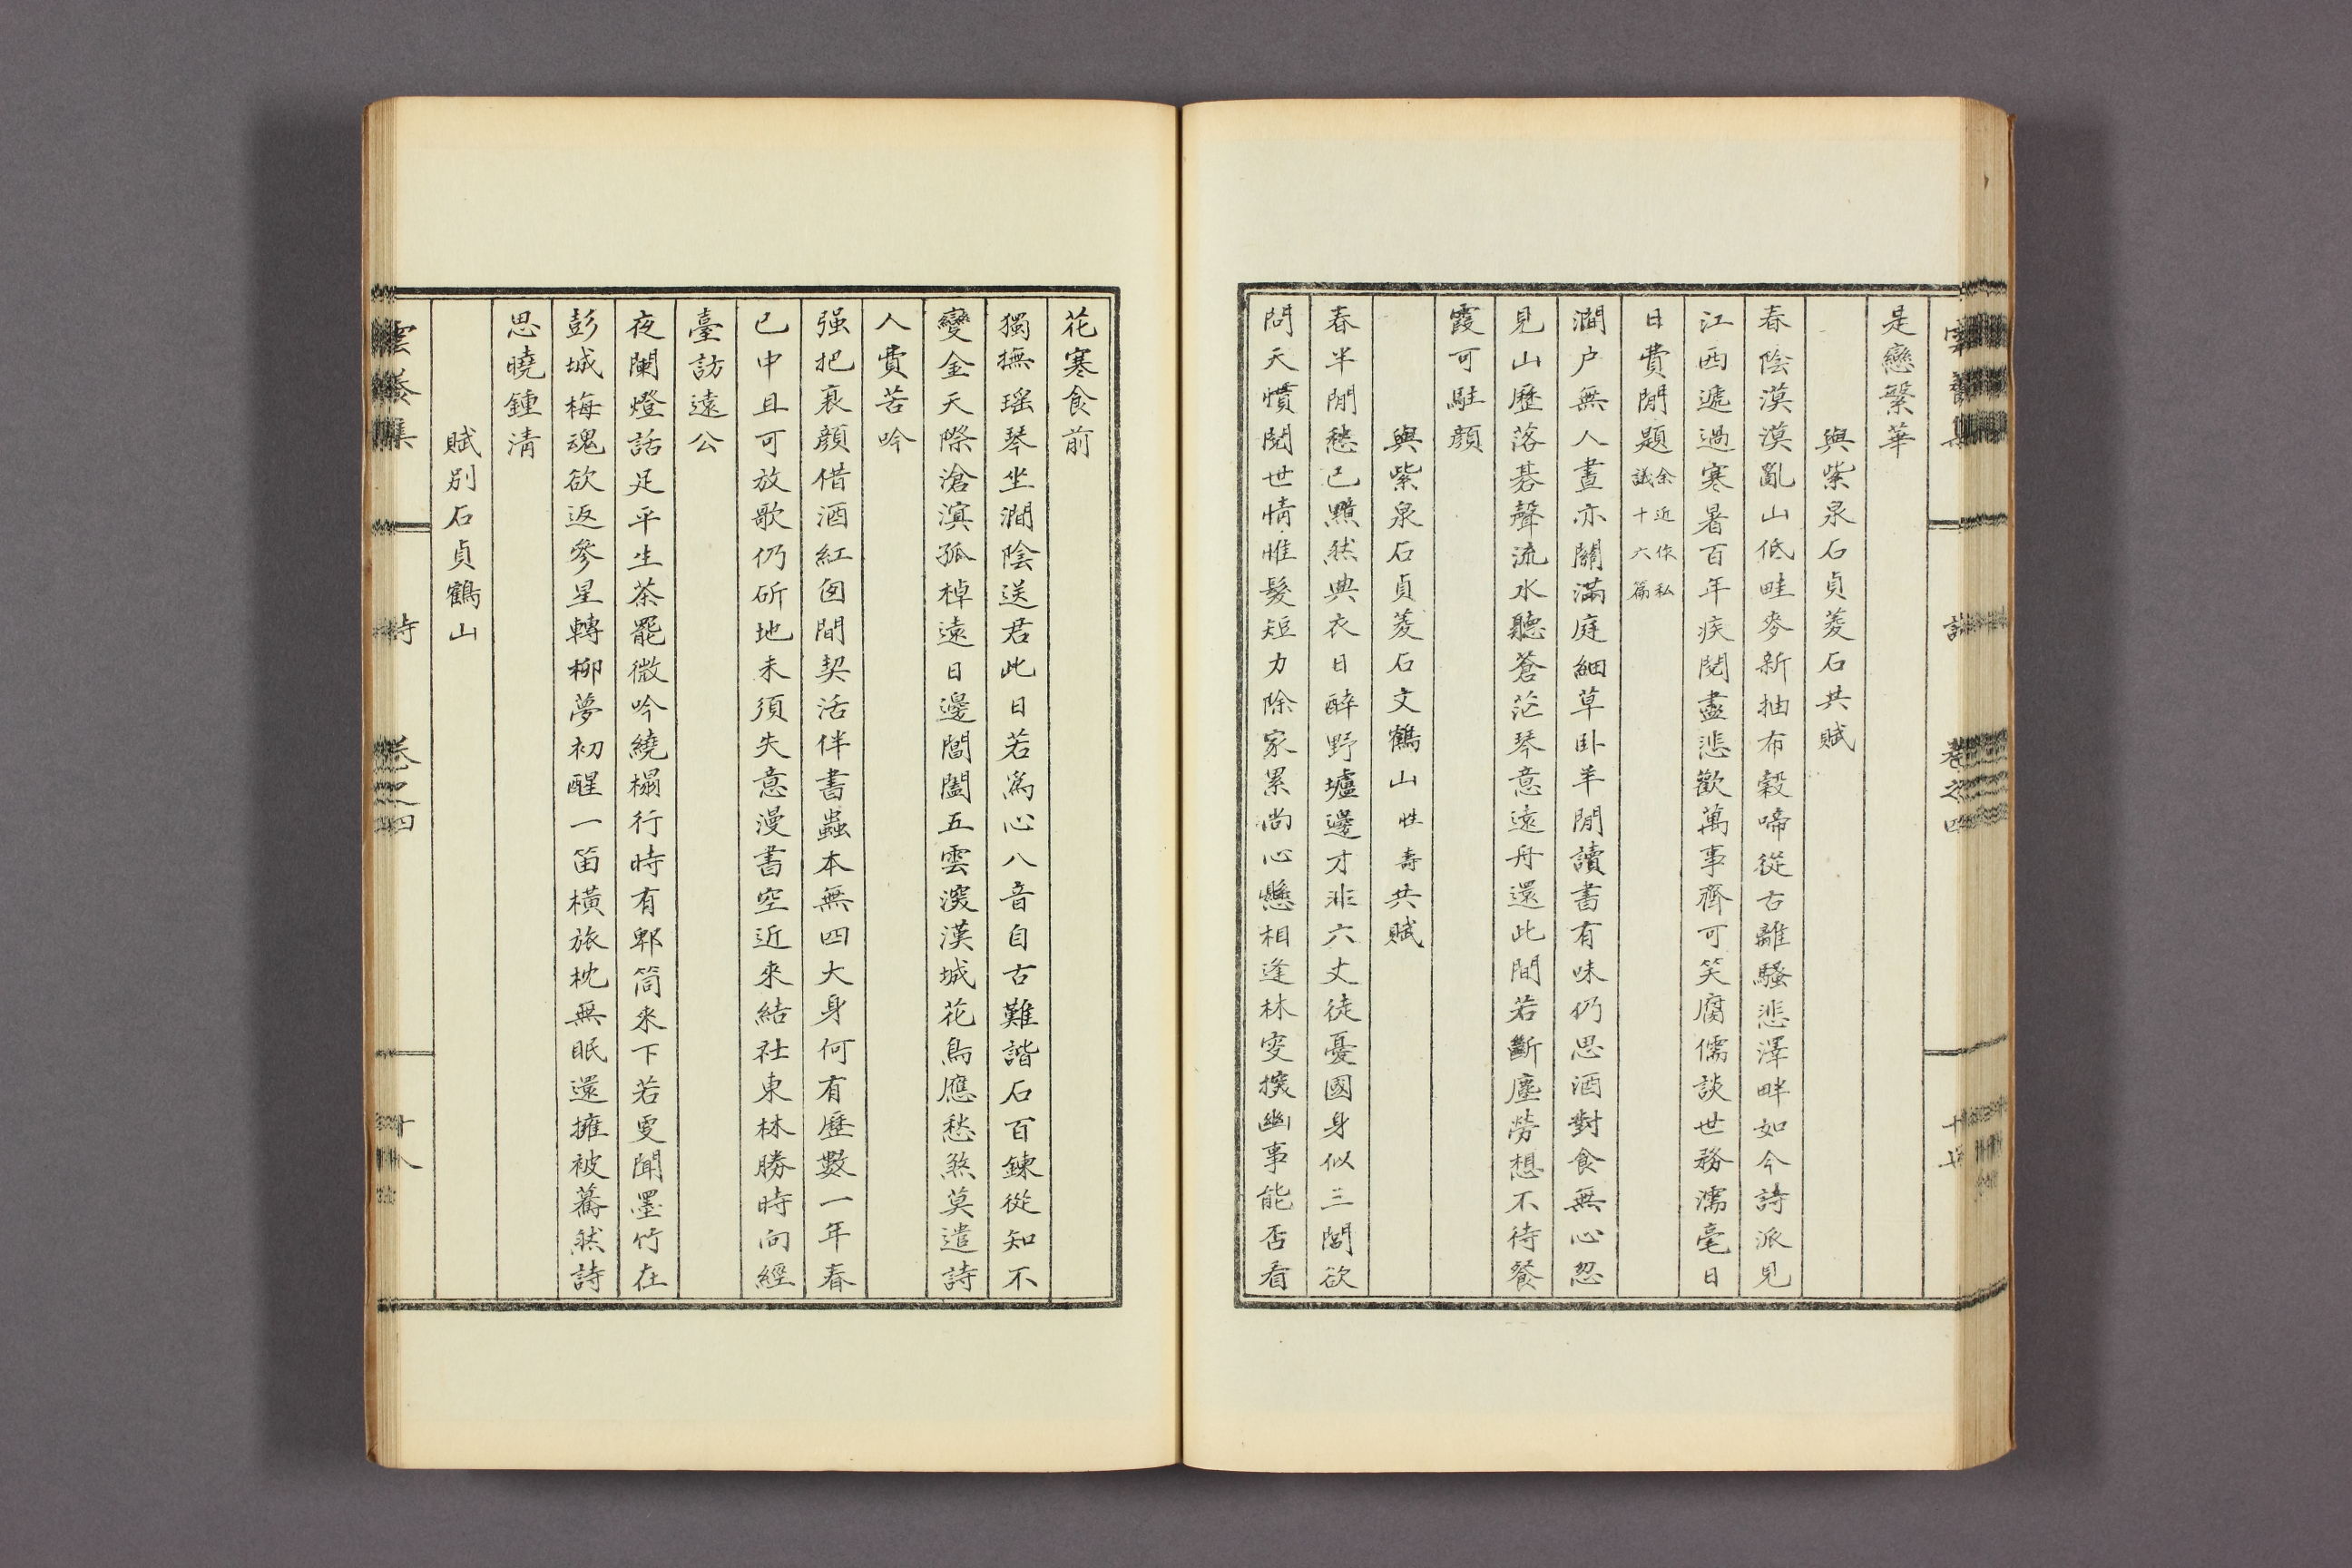 是戀繫華
與紫泉石貞菱石共賦
春陰漠漠亂山低畦麥新抽布穀啼從古離騷悲澤畔如今詩派見
江西遞過寒暑百年疾閱盡悲歡萬事齊可笑腐儒談世務濡毫日
日費閒題余近作私議十六篇
澗户無人晝亦關滿庭細草卧羊閒讀書有味仍思酒對食無心忽
見山歷落碁聲流水聽蒼茫琴意遠舟還此間若斷塵勞想不待餐
霞可駐顔
與紫泉石貞菱石文鶴山性壽共賦
春半閒愁已黯然典衣日醉野壚邊才非六丈徒憂國身似三閭欲
問天慣閱世情惟髮短力除家累尚心懸相逢林雯摸幽事能否看
花寒食前
獨撫瑶琴坐澗陰送君此日若爲心八音自古難諧石百鍊從知不
變金天際滄溟孤棹遠日邊閶闔五雲深漢城花鳥應愁煞莫遣詩
人費苦吟
强把衰顔借酒紅囱間契活伴書蟲本無四大身何有歷數一年春
已中且可放歌仍斫地未須失意漫書空近來結社東林勝時向經
臺訪遠公
夜闌燈話足平生茶罷微吟繞榻行時有郫筒来下若更聞墨竹在
彭城梅魂欲返參星轉柳夢初醒一笛橫旅枕無眠還擁被蕎然詩
思曉鍾清
賦別石貞鶴山
詩
卷之四
十八